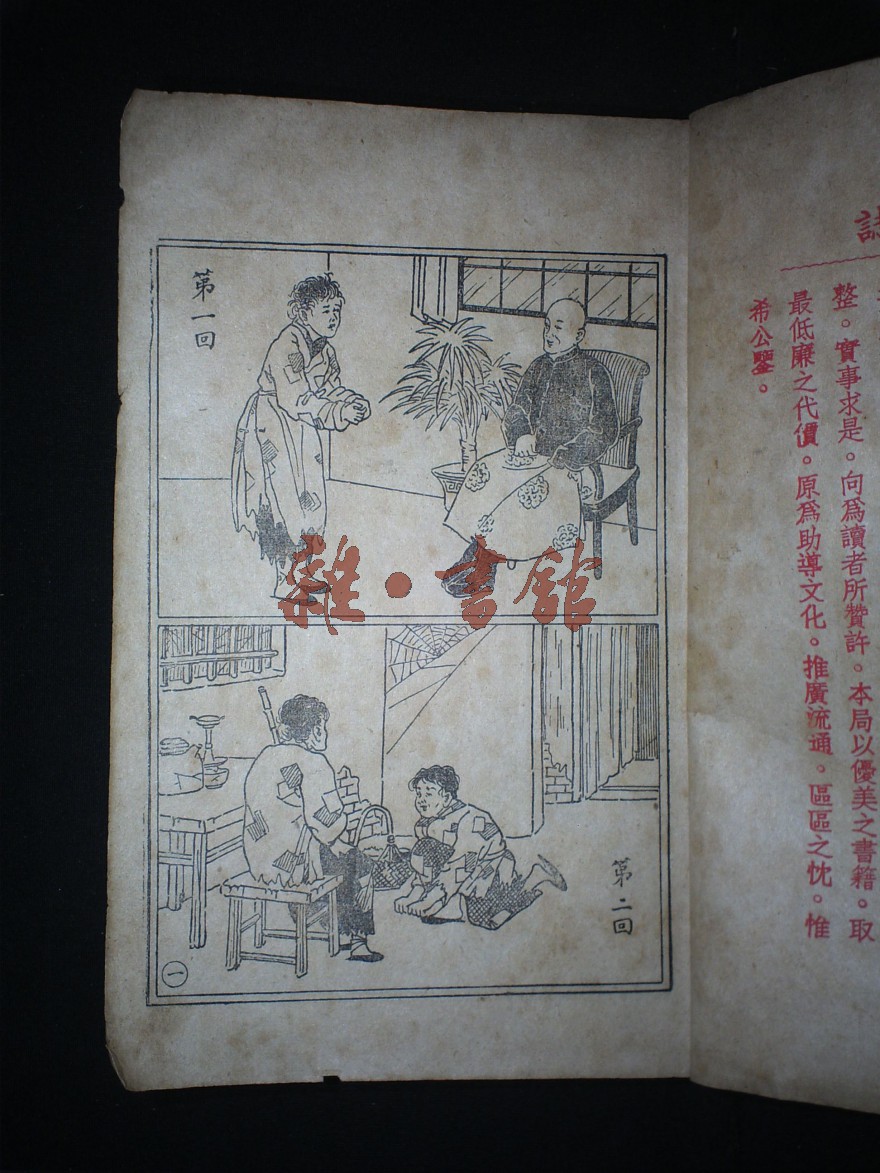 詩
整。實事求是。向爲讀者所贊許。本局以優美之書籍。取
最低廉之代價。原爲助導文化。推廣流通。區區之忱。惟
希公鑒。
第一回
雜·書館
第二回
一